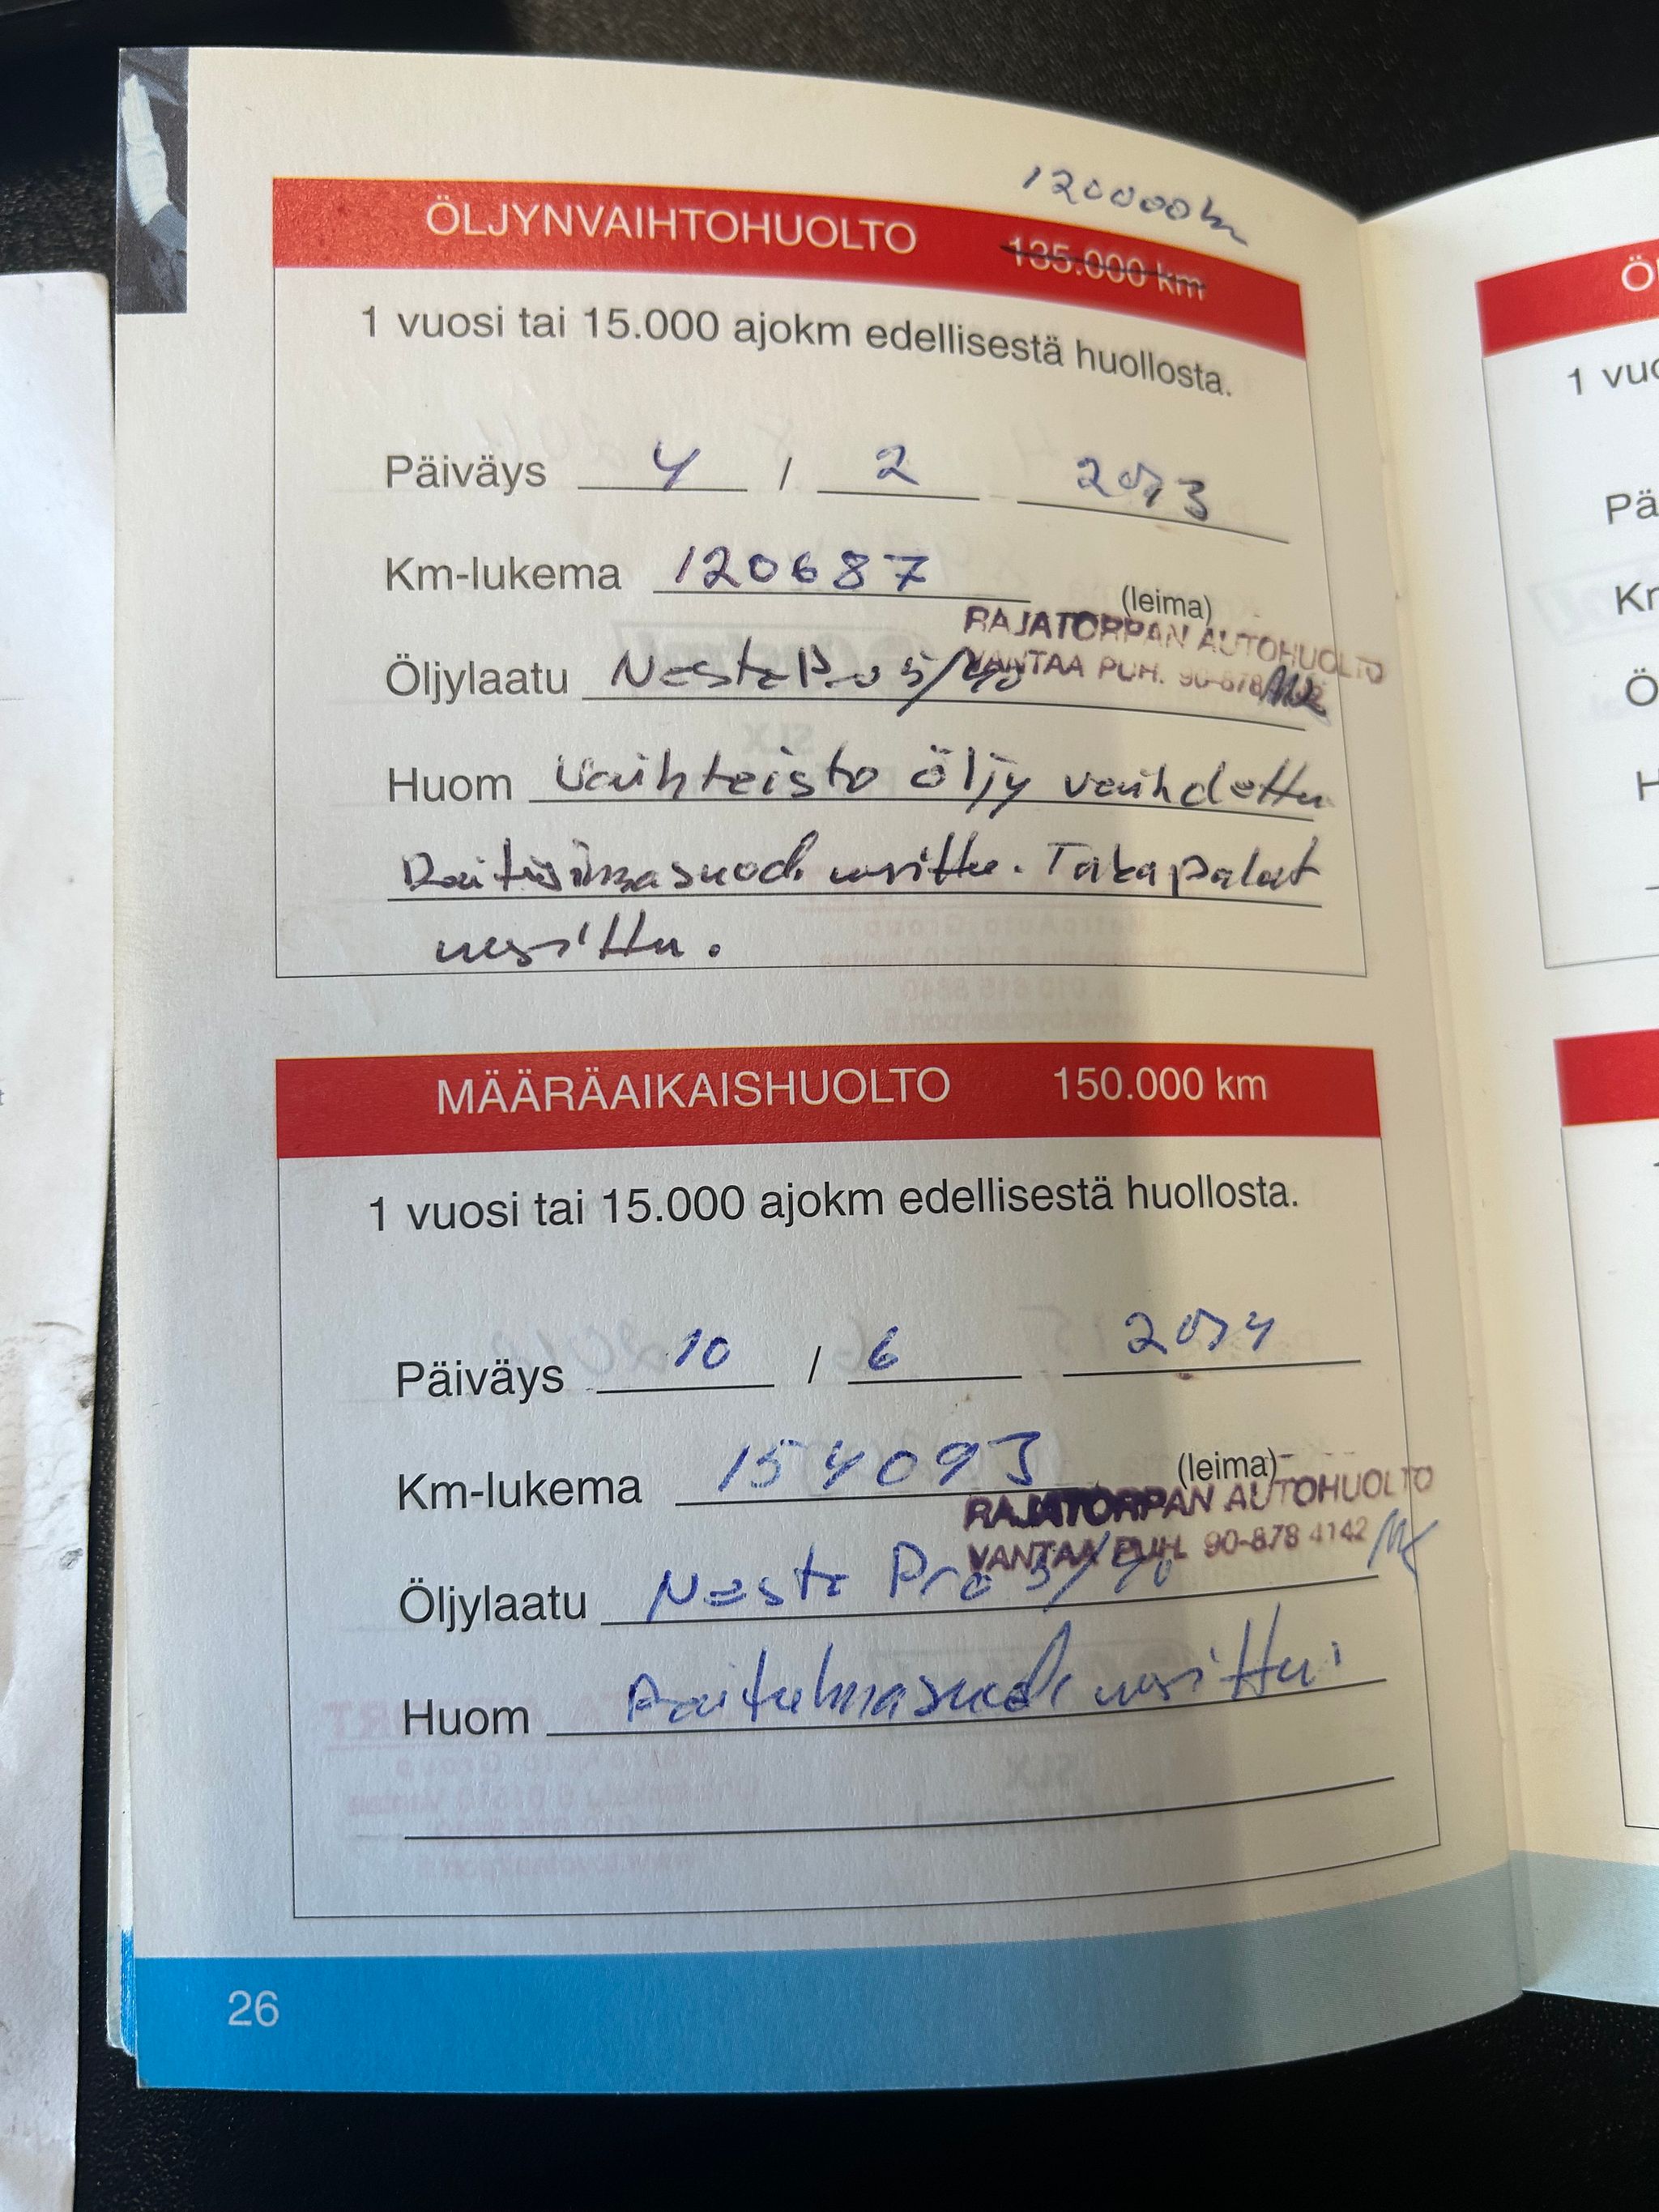 120000km
ÖLJYNVAIHTOHUOLTO 135.000 km
1 vuosi tai 15.000 ajokm edellisestä huollosta.
Päiväys 4 / 2 2013
Km-lukema 120687
(leima)
RAJATORPAN AUTOHUOLTO
VANTAA PUH. 90-878
Öljylaatu Neste Pro 5/40
Huom Vaihteisto öljy vaihdettu
Raitisilmasuod. uusittu. Takapalat
uusittu.
MÄÄRÄAIKAISHUOLTO 150.000 km
1 vuosi tai 15.000 ajokm edellisestä huollosta.
Päiväys 10 / 6 2014
Km-lukema 154093
(leima)
RAJATORPAN AUTOHUOLTO
VANTAA PUH. 90-878 4142
Öljylaatu Neste Pro 5/40
Huom Raitisilmasuod. uusittu.
26
Ö
1 vuo
Pä
Ö
H